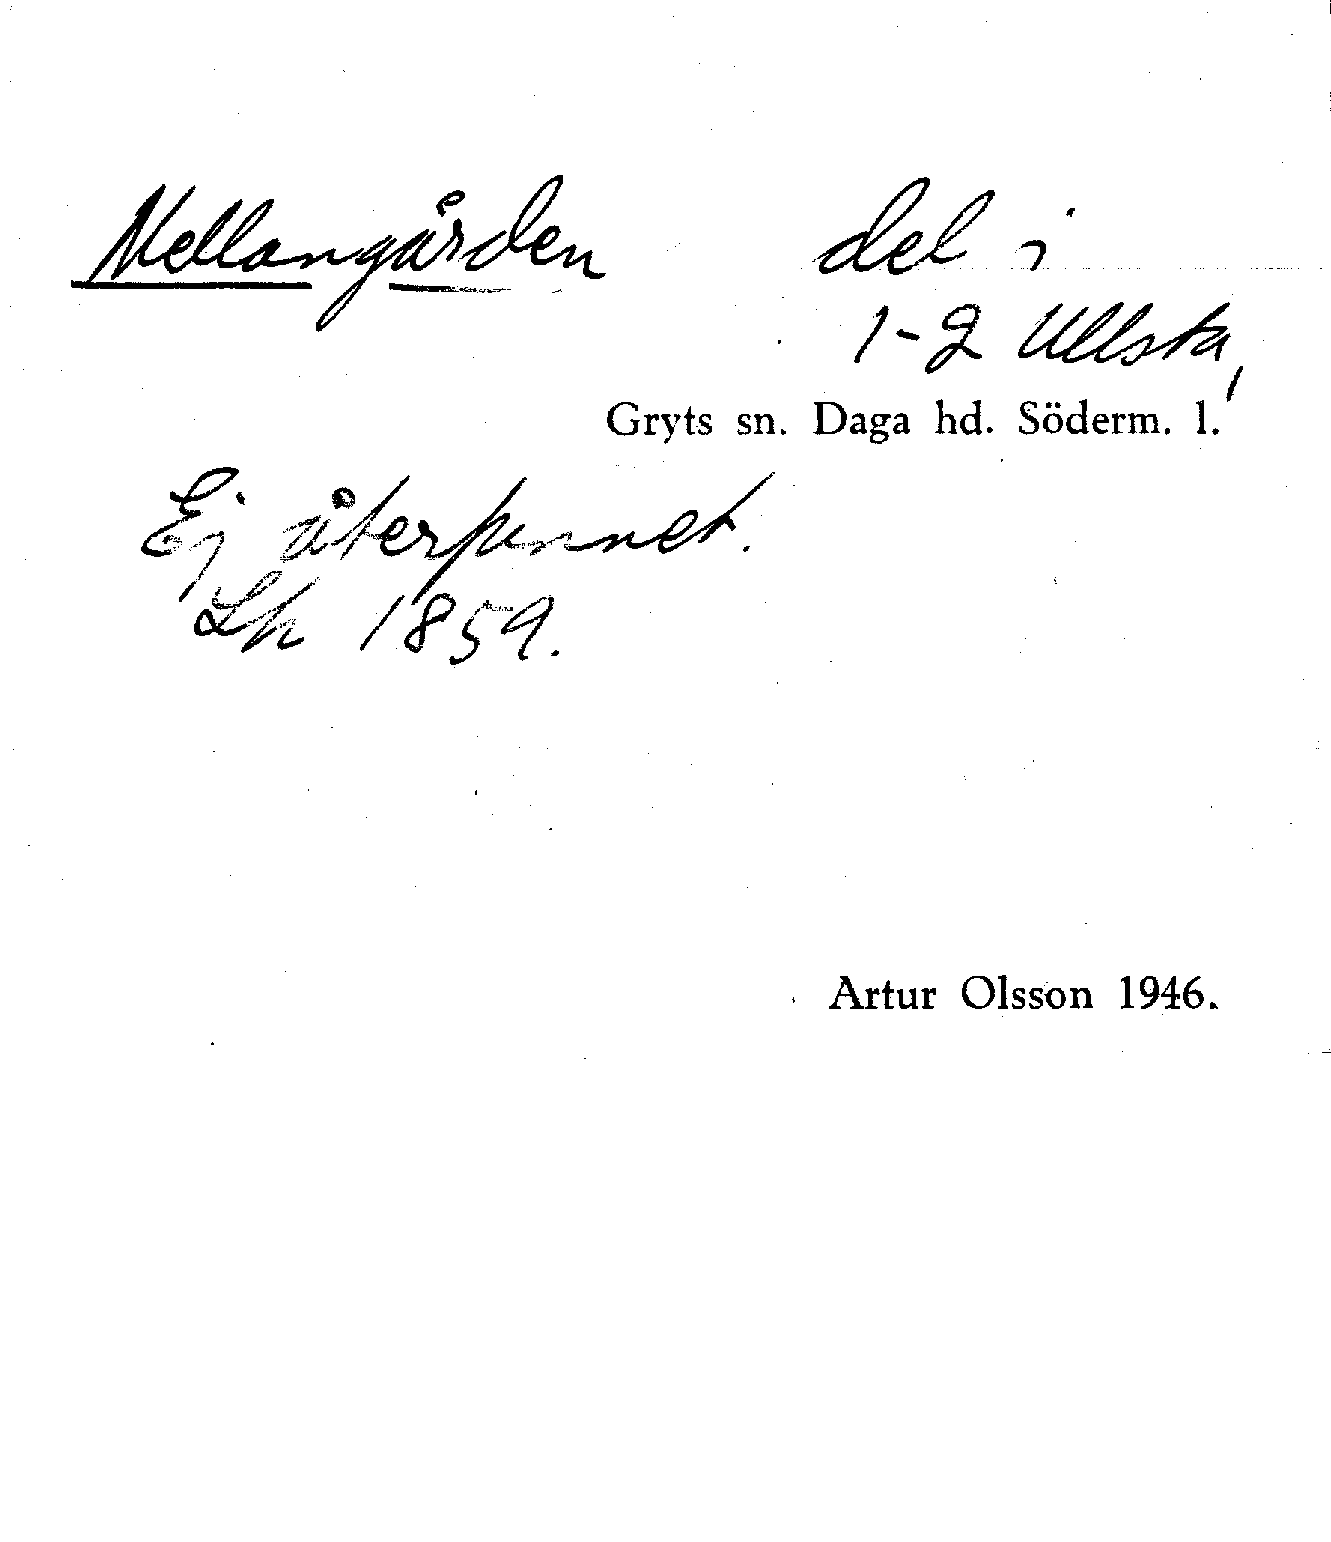 Mellangården del i
1-2 Ullsta,
Gryts sn. Daga hd. Söderm. l.
Ej återfunnet.
Lh 1859.
Artur Olsson 1946.